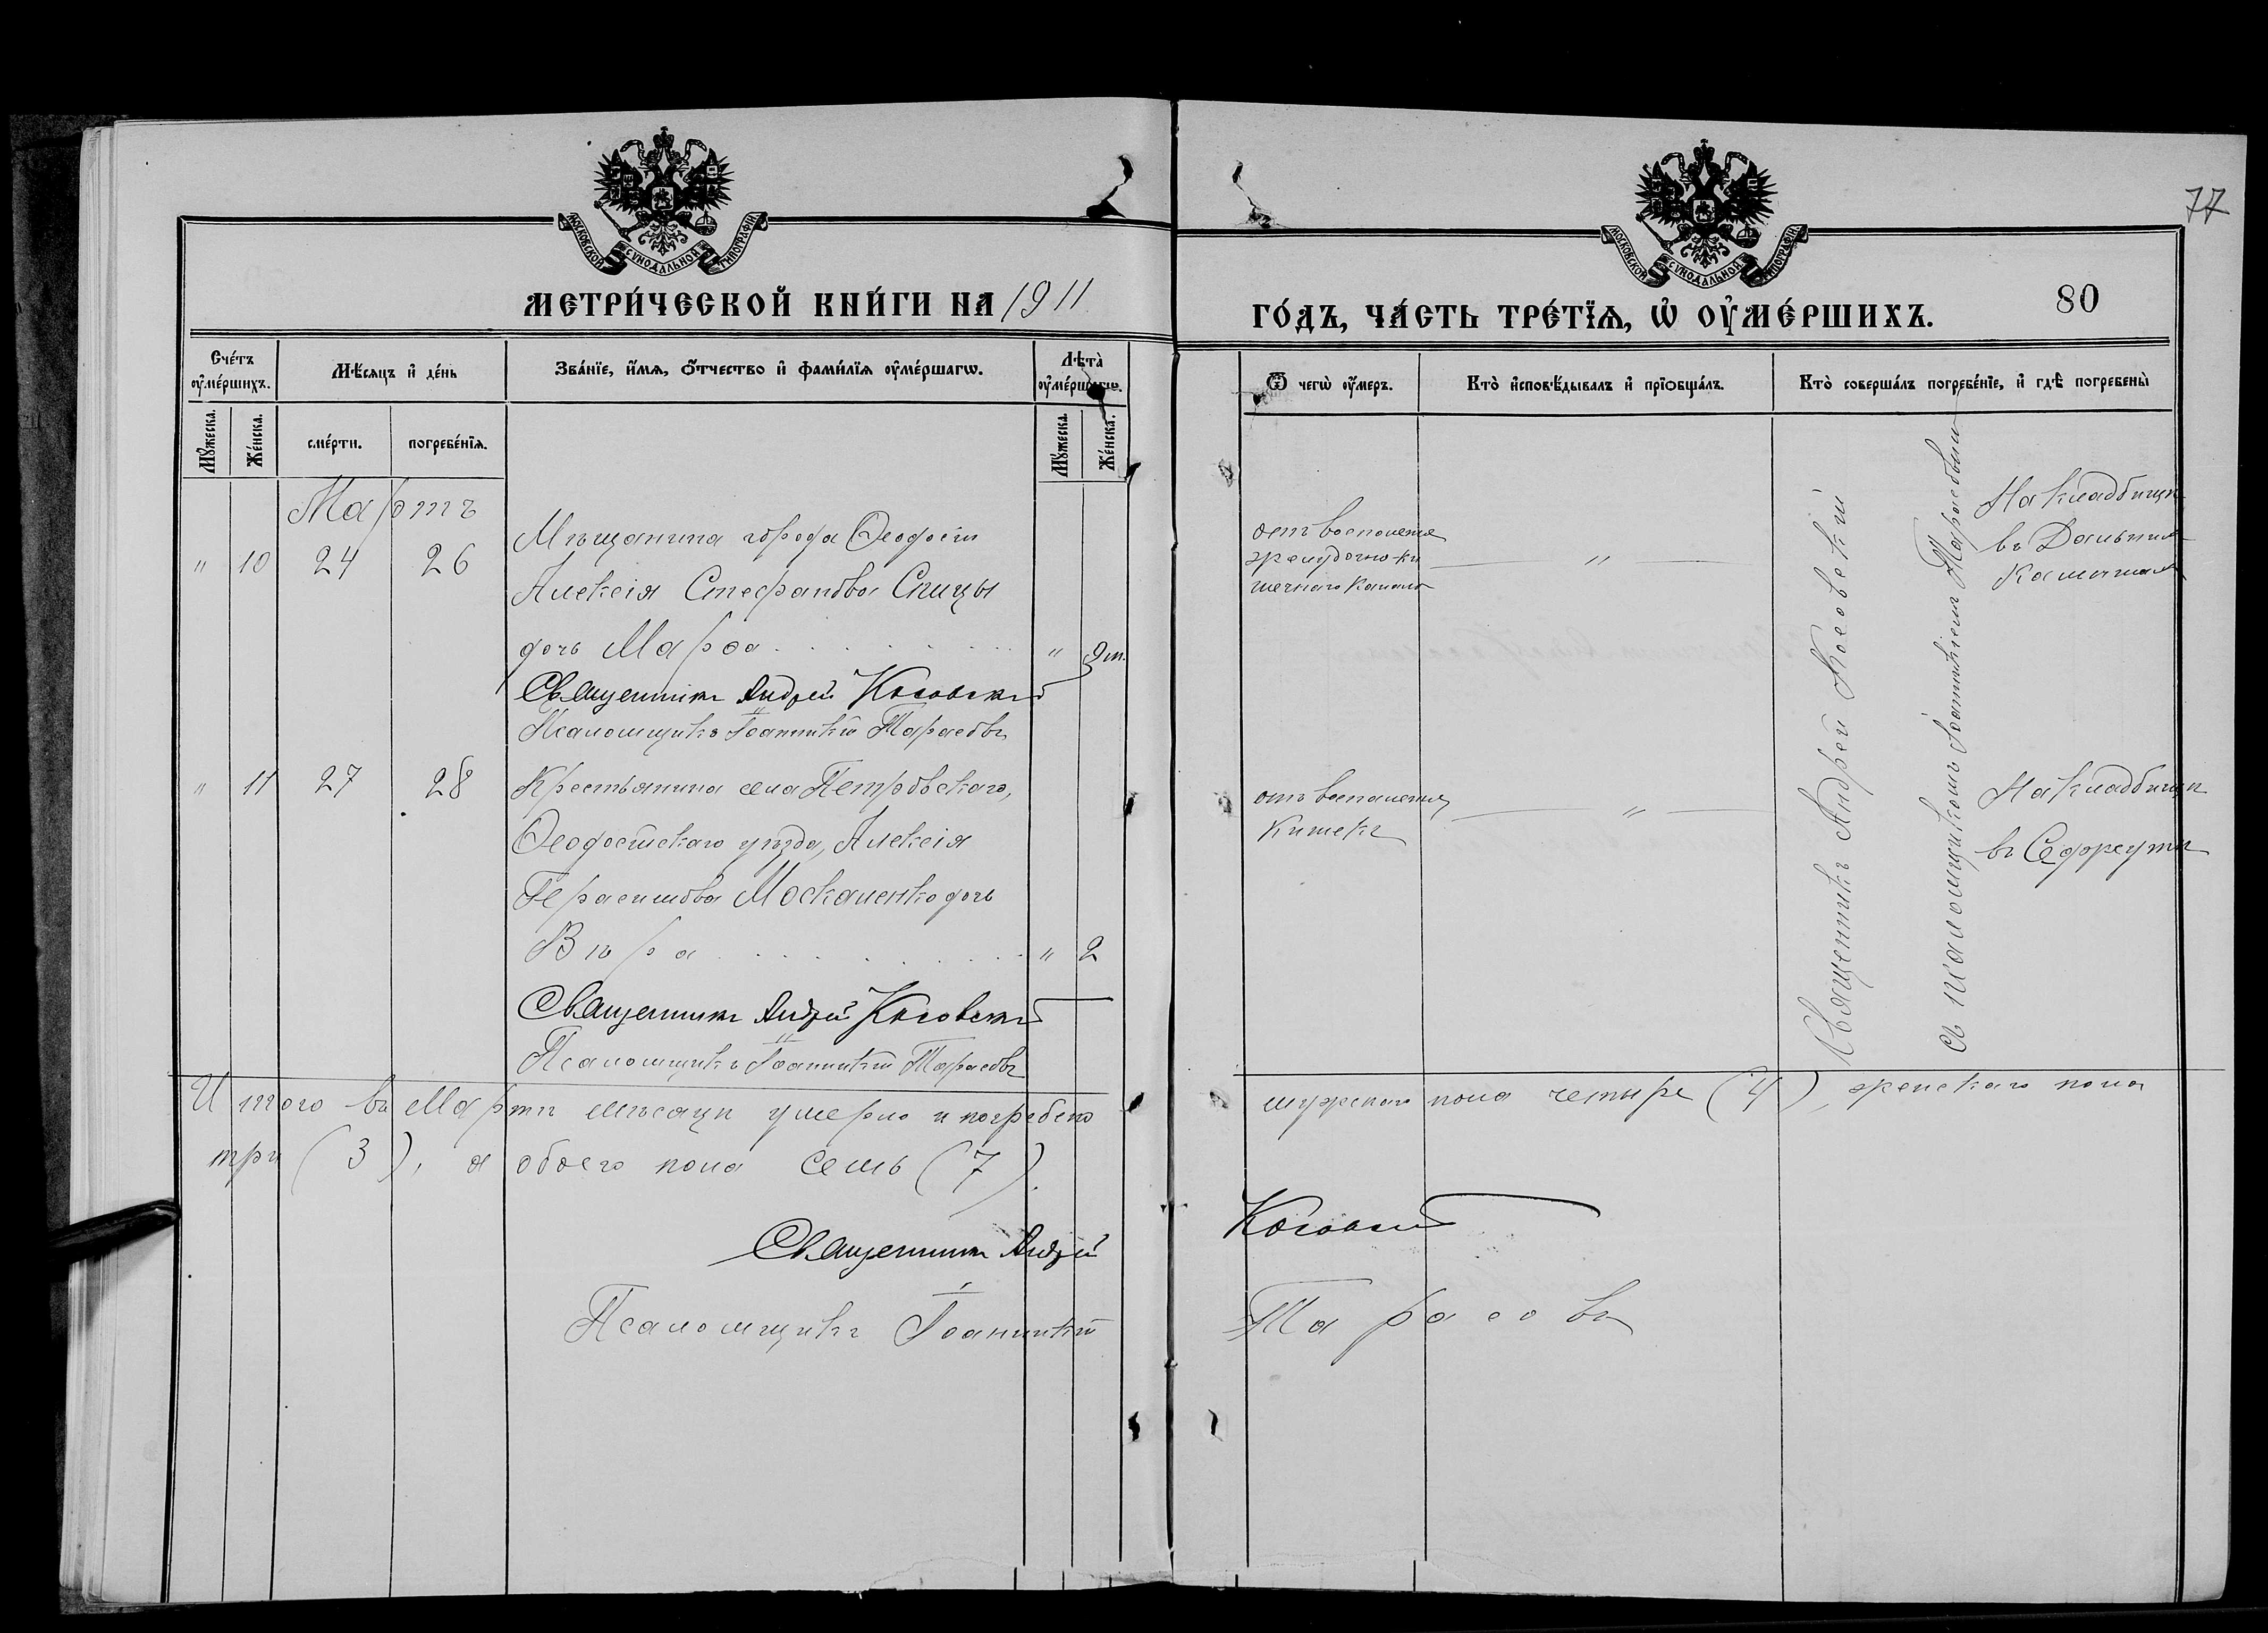 МОСКОВСКОЙ СѴНОДАЛЬНОЙ ТИПОГРАФІИ
МОСКОВСКОЙ СѴНОДАЛЬНОЙ ТИПОГРАФІИ
77
МЕТРИ́ЧЕСКОЙ КНИ́ГИ НА 1911
ГО́ДЪ, ЧА́СТЬ ТРЕ́ТЇѦ, Ѽ ОУ҆МЕ́РШИХЪ.
80
Сче́тъ оу҆ме́ршихъ.
Мѣ́сяцъ и҆ де́нь
Зва́нїе, и҆́мѧ, ѻ҆́тчество и҆ фами́лїѧ оу҆ме́ршагѡ.
Лѣ́та оу҆ме́ршагѡ.
Ѿ чегѡ̀ оу҆́меръ.
Кто̀ и҆сповѣ́дывалъ и҆ прїѻбща́лъ.
Кто̀ соверша́лъ погребе́нїе, и҆ гдѣ̀ погребены̀
Мꙋ́жеска.
Же́нска.
сме́рти.
погребе́нїѧ.
Мꙋ́жеска.
Же́нска.
Мартъ
" 10 24 26
Мѣщанина города Ѳеодосіи
Алексія Стефанова Спицы
дочь Марѳа . . . . . . . . " 9 м.
Священникъ Андрей Косовскій
Псаломщикъ Іоанникій Тарасовъ
отъ воспаленія
желудочно-ки
шечнаго канала
"
Священникъ Андрей Косовскій
съ псаломщикомъ Іоанникіемъ Тарасовымъ
На кладбищѣ
въ Дальнихъ
Камышахъ
" 11 27 28
Крестьянина села Петровскаго,
Ѳеодосійскаго уѣзда, Алексія
Герасимова Москаленко дочь
Вѣра . . . . . . . . " 2
Священникъ Андрей Косовскій
Псаломщикъ Іоанникій Тарасовъ
отъ воспаленія
кишекъ
"
На кладбищѣ
въ Сеффеутѣ
Итого въ Мартѣ мѣсяцѣ умерло и погребено мужскаго пола четыре (4), женскаго пола
три (3), а обоего пола семь (7).
Священникъ Андрей Косовскій
Псаломщикъ Іоанникій Тарасовъ